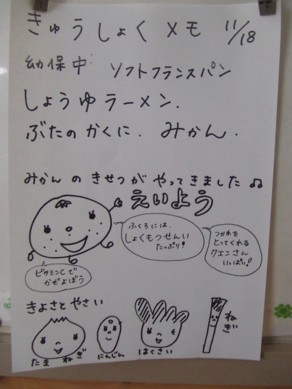 きゅうしょくメモ 11/18
幼保中: ソフトフランスパン
しょうゆラーメン.
ぶたのかくに. みかん.
みかんのきせつがやってきました♫
えいよう
ふくろには、
しょくもつせんい
たっぷり!
つかれを
とってくれる
クエンさん
いっぱい!
ビタミンCで
かぜよぼう
きよさとやさい
たまねぎ
にんじん
はくさい
ねぎ